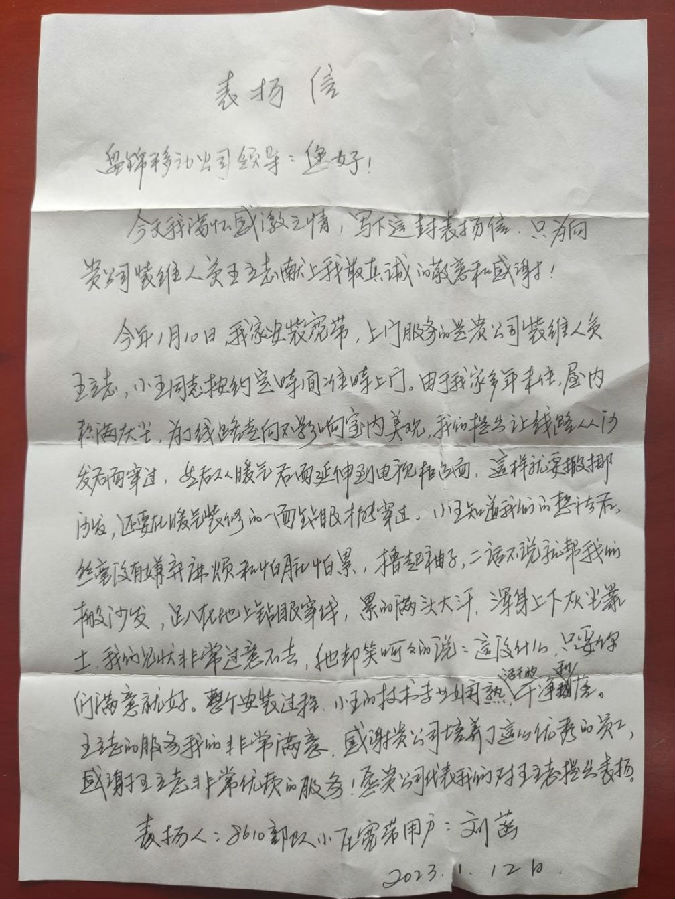 表扬信
盘锦移动公司领导：您好！
今天我满怀感激之情，写下这封表扬信，只为向
贵公司装维人员王立志献上我最真诚的敬意和感谢！
今年1月10日，我家安装宽带，上门服务的是贵公司装维人员
王立志，小王同志按约定时间准时上门。由于我家多年未住，屋内
积满灰尘，为了线路走向不影响室内美观，我们提出让线路从沙
发后面穿过，然后从暖气后面延伸到电视柜后面，这样就要搬挪
沙发，还要在暖气装修的一面钻眼才能穿过。小王知道我们的想法后，
丝毫没有嫌弃麻烦和怕脏怕累，撸起袖子，二话不说就帮我们
搬沙发，趴在地上钻眼穿线，累的满头大汗，浑身上下灰尘暴
土，我们见状非常过意不去，他却笑呵呵的说：这没什么，只要你
们满意就好。整个安装过程，小王的技术专业娴熟，活干的干净利落。
王立志的服务我们非常满意，感谢贵公司培养了这么优秀的员工，
感谢王立志非常优质的服务！愿贵公司代表我们对王立志提出表扬。
表扬人：8610部队小区宽带用户：刘
2023.1.12日